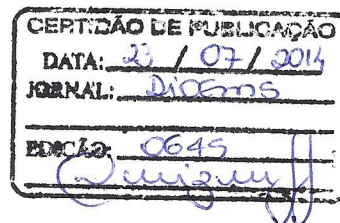 CERTIDÃO DE PUBLICAÇÃO
DATA: 23 / 07 / 2014
JORNAL: DIOEMS
EDIÇÃO: 0645